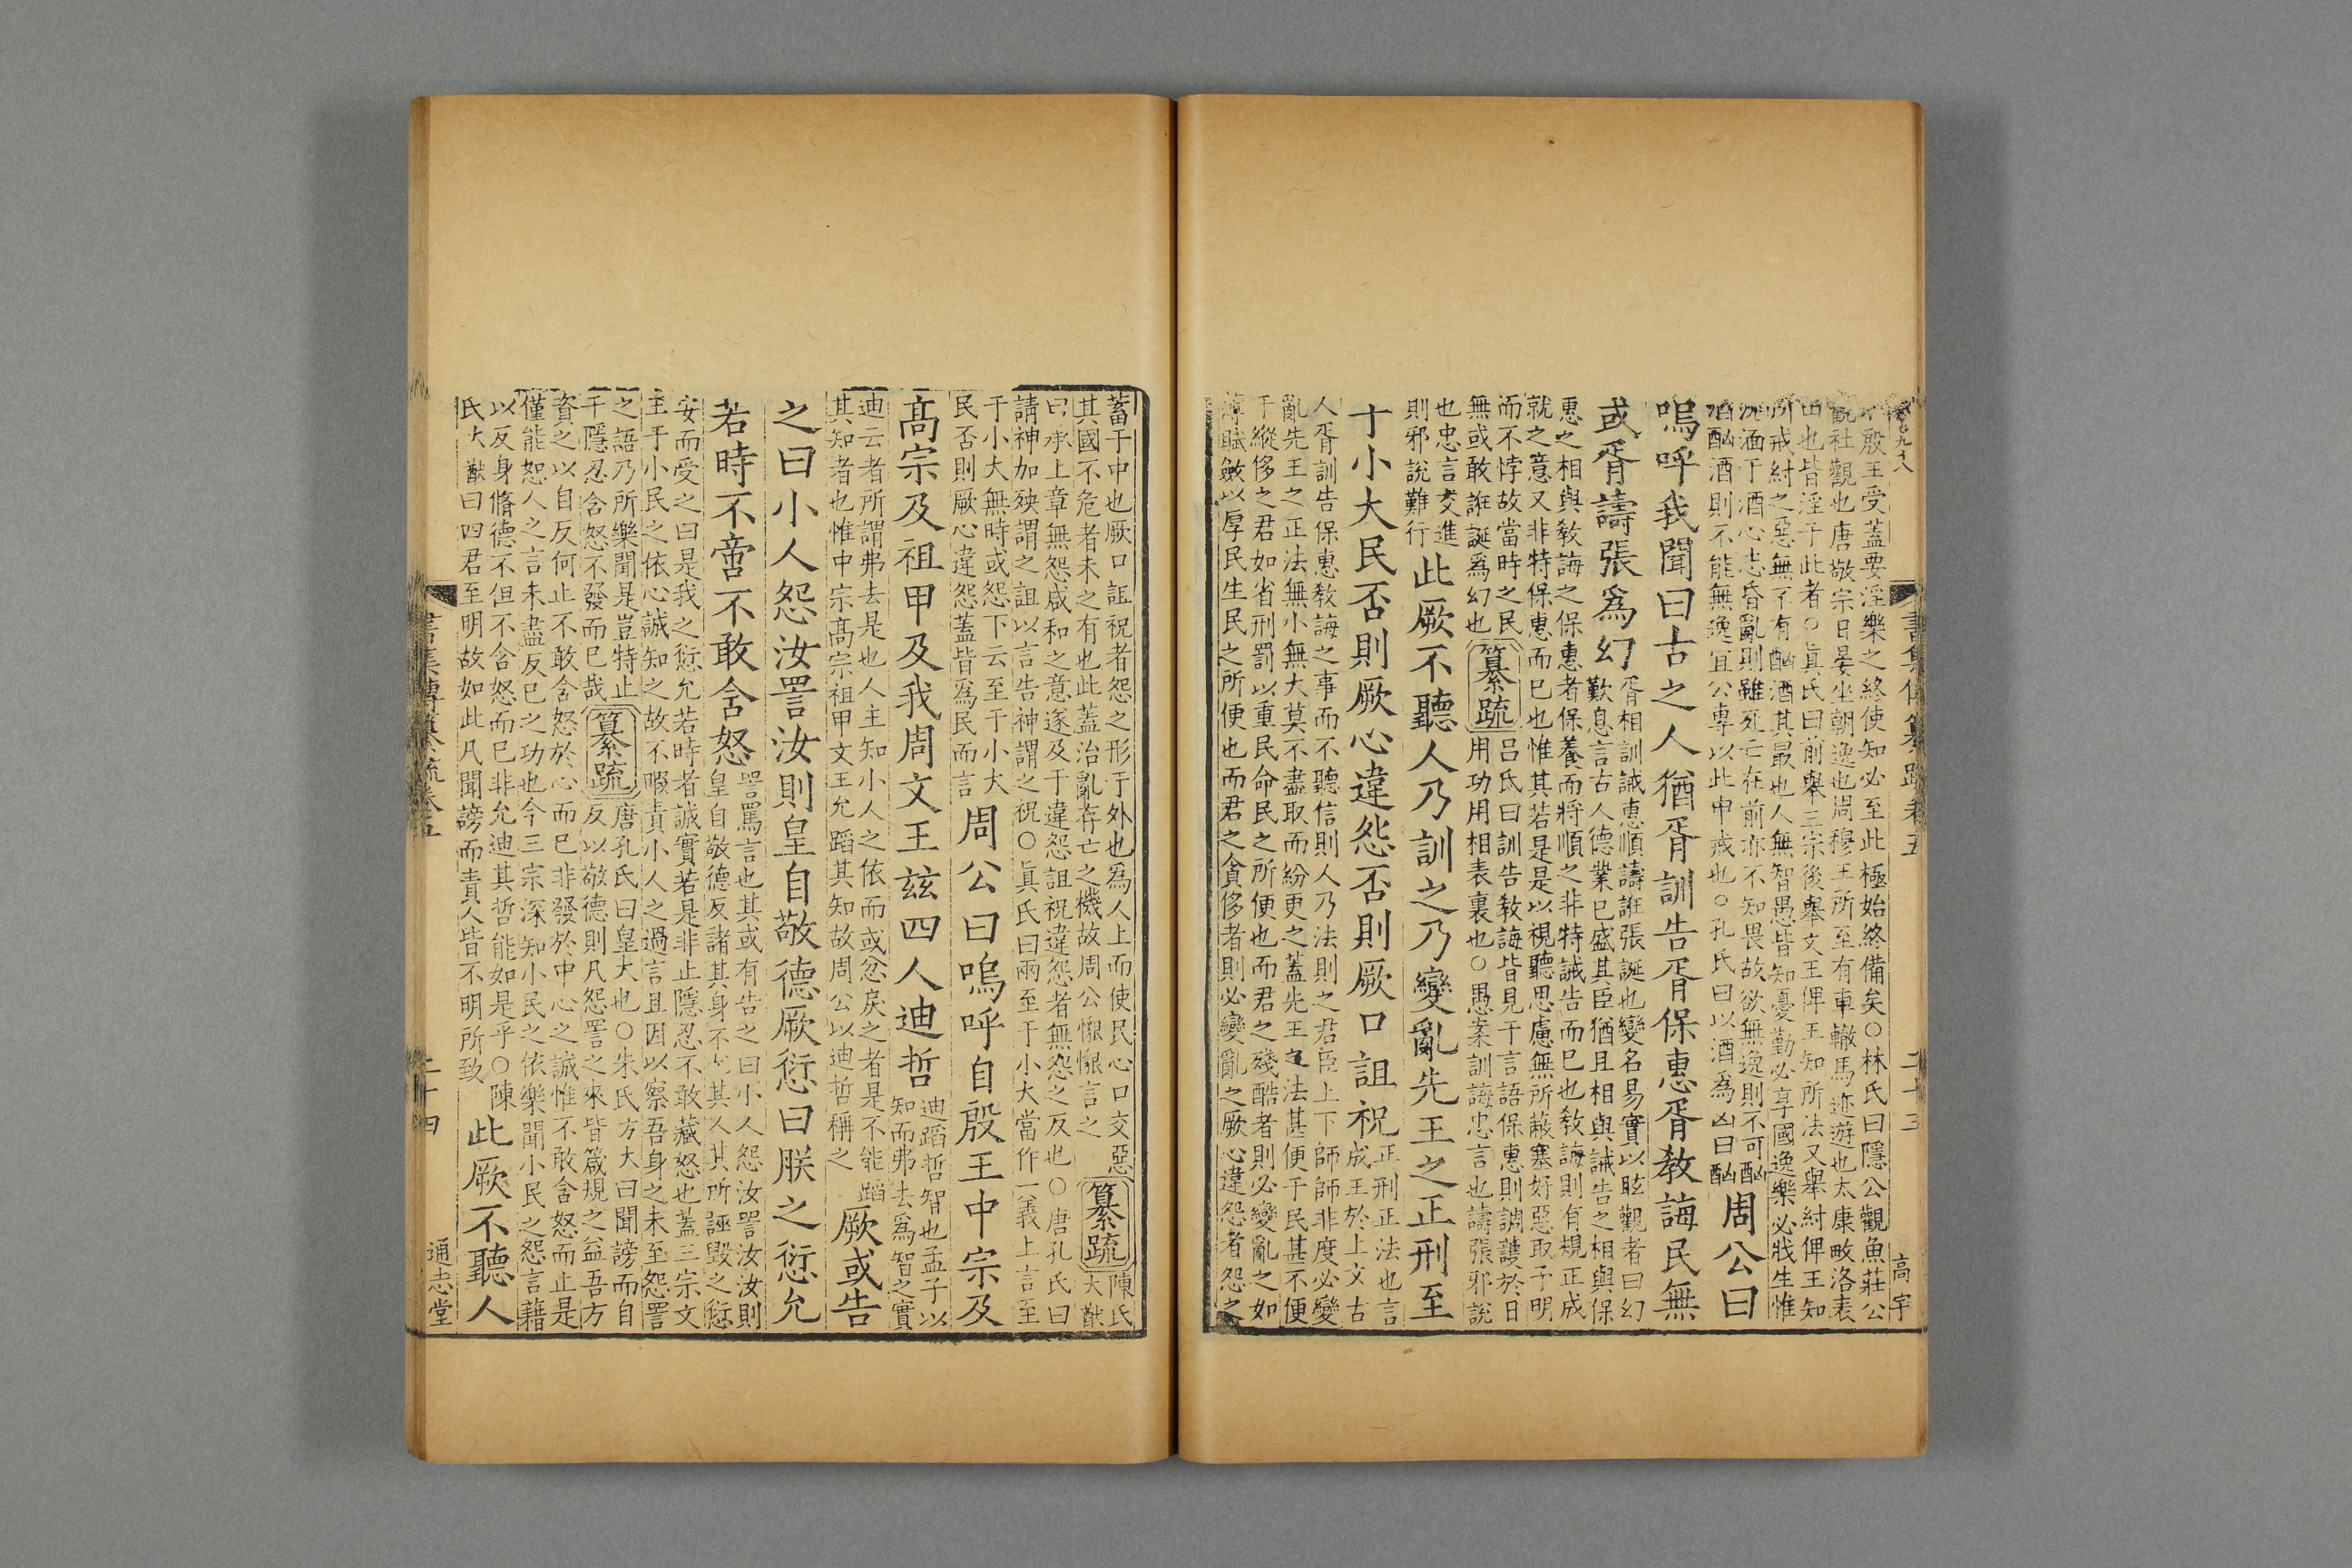 書集傳纂疏卷五
二十三
高宇
殷王受蓋要淫樂之終使知必至此極始終備矣○林氏曰隱公觀魚莊公
觀社觀也唐敬宗日晏坐朝逸也周穆王所至有車轍馬迹遊也太康畋洛表
田也皆淫于此者○眞氏曰前舉三宗後舉文王俾王知所法又舉紂俾王知
所戒紂之惡無不有酗酒其最也人無智愚皆知憂勤必享國逸樂必戕生惟
沈湎于酒心志昏亂則雖死亡在前亦不知畏故欲無逸則不可酗
酒酗酒則不能無逸宜公專以此申戒也○孔氏曰以酒爲凶曰酗
周公曰
嗚呼我聞曰古之人猶胥訓告胥保惠胥教誨民無
或胥譸張爲幻
胥相訓誡惠順譸誑張誕也變名易實以眩觀者曰幻
歎息言古人德業已盛其臣猶且相與誡告之相與保
惠之相與敎誨之保惠者保養而將順之非特誡告而已也敎誨則有規正成
就之意又非特保惠而已也惟其若是是以視聽思慮無所蔽塞好惡取予明
而不悖故當時之民
無或敢誑誕爲幻也
纂疏
呂氏曰訓告敎誨皆見于言語保惠則調護於日
用功用相表裏也○愚案訓誨忠言也譸張邪說
也忠言交進
則邪說難行
此厥不聽人乃訓之乃變亂先王之正刑至
于小大民否則厥心違怨否則厥口詛祝
正刑正法也言
成王於上文古
人胥訓告保惠敎誨之事而不聽信則人乃法則之君臣上下師師非度必變
亂先王之正法無小無大莫不盡取而紛更之蓋先王之法甚便于民甚不便
于縱侈之君如省刑罰以重民命民之所便也而君之殘酷者則必變亂之如
薄賦斂以厚民生民之所便也而君之貪侈者則必變亂之厥心違怨者怨之
蓄于中也厥口詛祝者怨之形于外也爲人上而使民心口交惡
其國不危者未之有也此蓋治亂存亡之機故周公懇懇言之
纂疏
陳氏
大猷
曰承上章無怨咸和之意遂及于違怨詛祝違怨者無怨之反也○唐孔氏曰
請神加殃謂之詛以言告神謂之祝○眞氏曰兩至于小大當作一義上言至
于小大無時或怨下云至于小大
民否則厥心違怨蓋皆爲民而言
周公曰嗚呼自殷王中宗及
高宗及祖甲及我周文王茲四人迪哲
迪蹈哲智也孟子以
知而弗去爲智之實
迪云者所謂弗去是也人主知小人之依而或忿戾之者是不能蹈
其知者也惟中宗高宗祖甲文王允蹈其知故周公以迪哲稱之
厥或告
之曰小人怨汝詈汝則皇自敬德厥愆曰朕之愆允
若時不啻不敢含怒
詈罵言也其或有告之曰小人怨汝詈汝汝則
皇自敬德反諸其身不尤其人其所誣毀之愆
安而受之曰是我之愆允若時者誠實若是非止隱忍不敢藏怒也蓋三宗文
王于小民之依心誠知之故不暇責小人之過言且因以察吾身之未至怨詈
之語乃所樂聞是豈特止
于隱忍含怒不發而已哉
纂疏
唐孔氏曰皇大也○朱氏方大曰聞謗而自
反以敬德則凡怨詈之來皆箴規之益吾方
資之以自反何止不敢含怒於心而已非發於中心之誠惟不敢含怒而止是
僅能恕人之言未盡反己之功也今三宗深知小民之依樂聞小民之怨言藉
以反身脩德不但不含怒而已非允迪其哲能如是乎○陳
氏大猷曰四君至明故如此凡聞謗而責人皆不明所致
此厥不聽人
書集傳纂疏卷五
二十四
通志堂